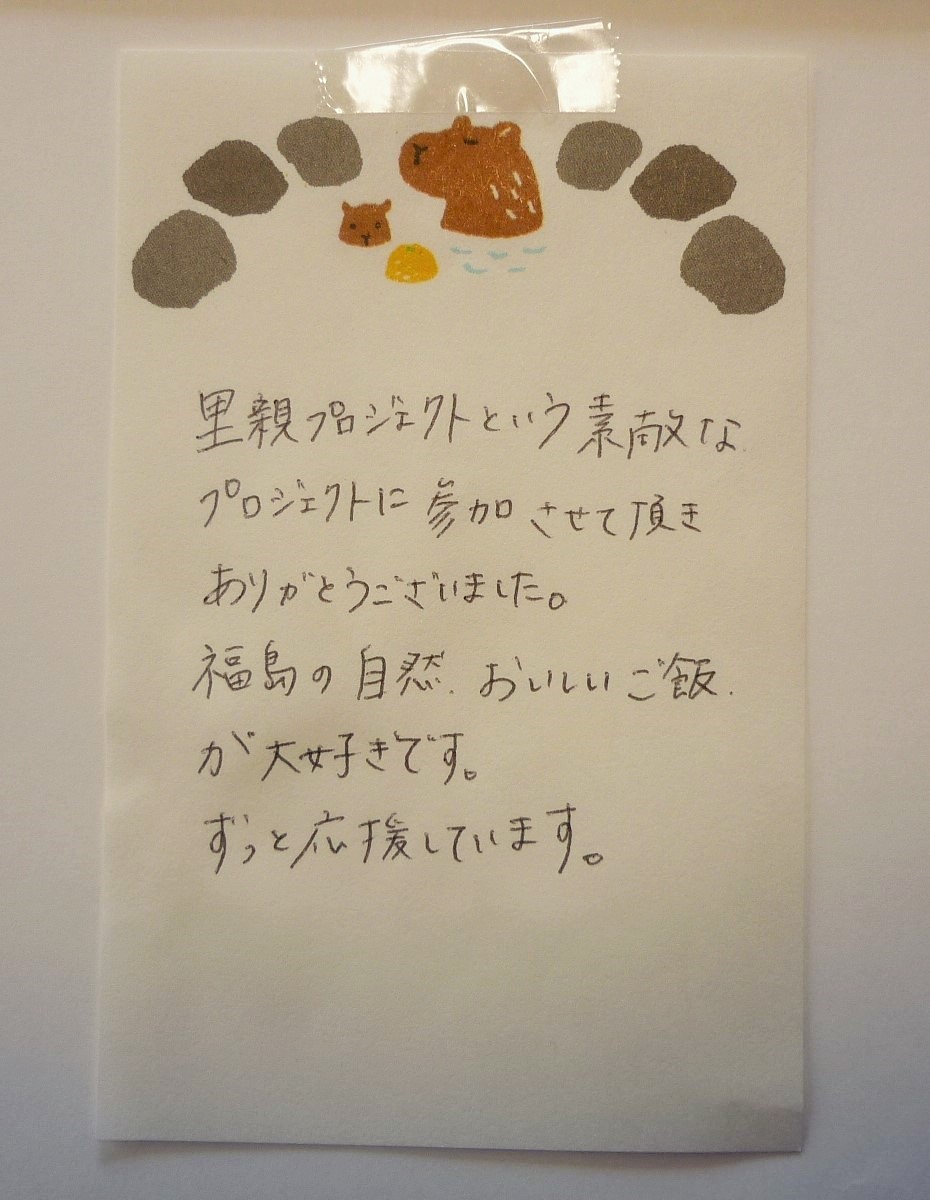 里親プロジェクトという素敵な
プロジェクトに参加させて頂き
ありがとうございました。
福島の自然、おいしいご飯、
が大好きです。
ずっと応援しています。